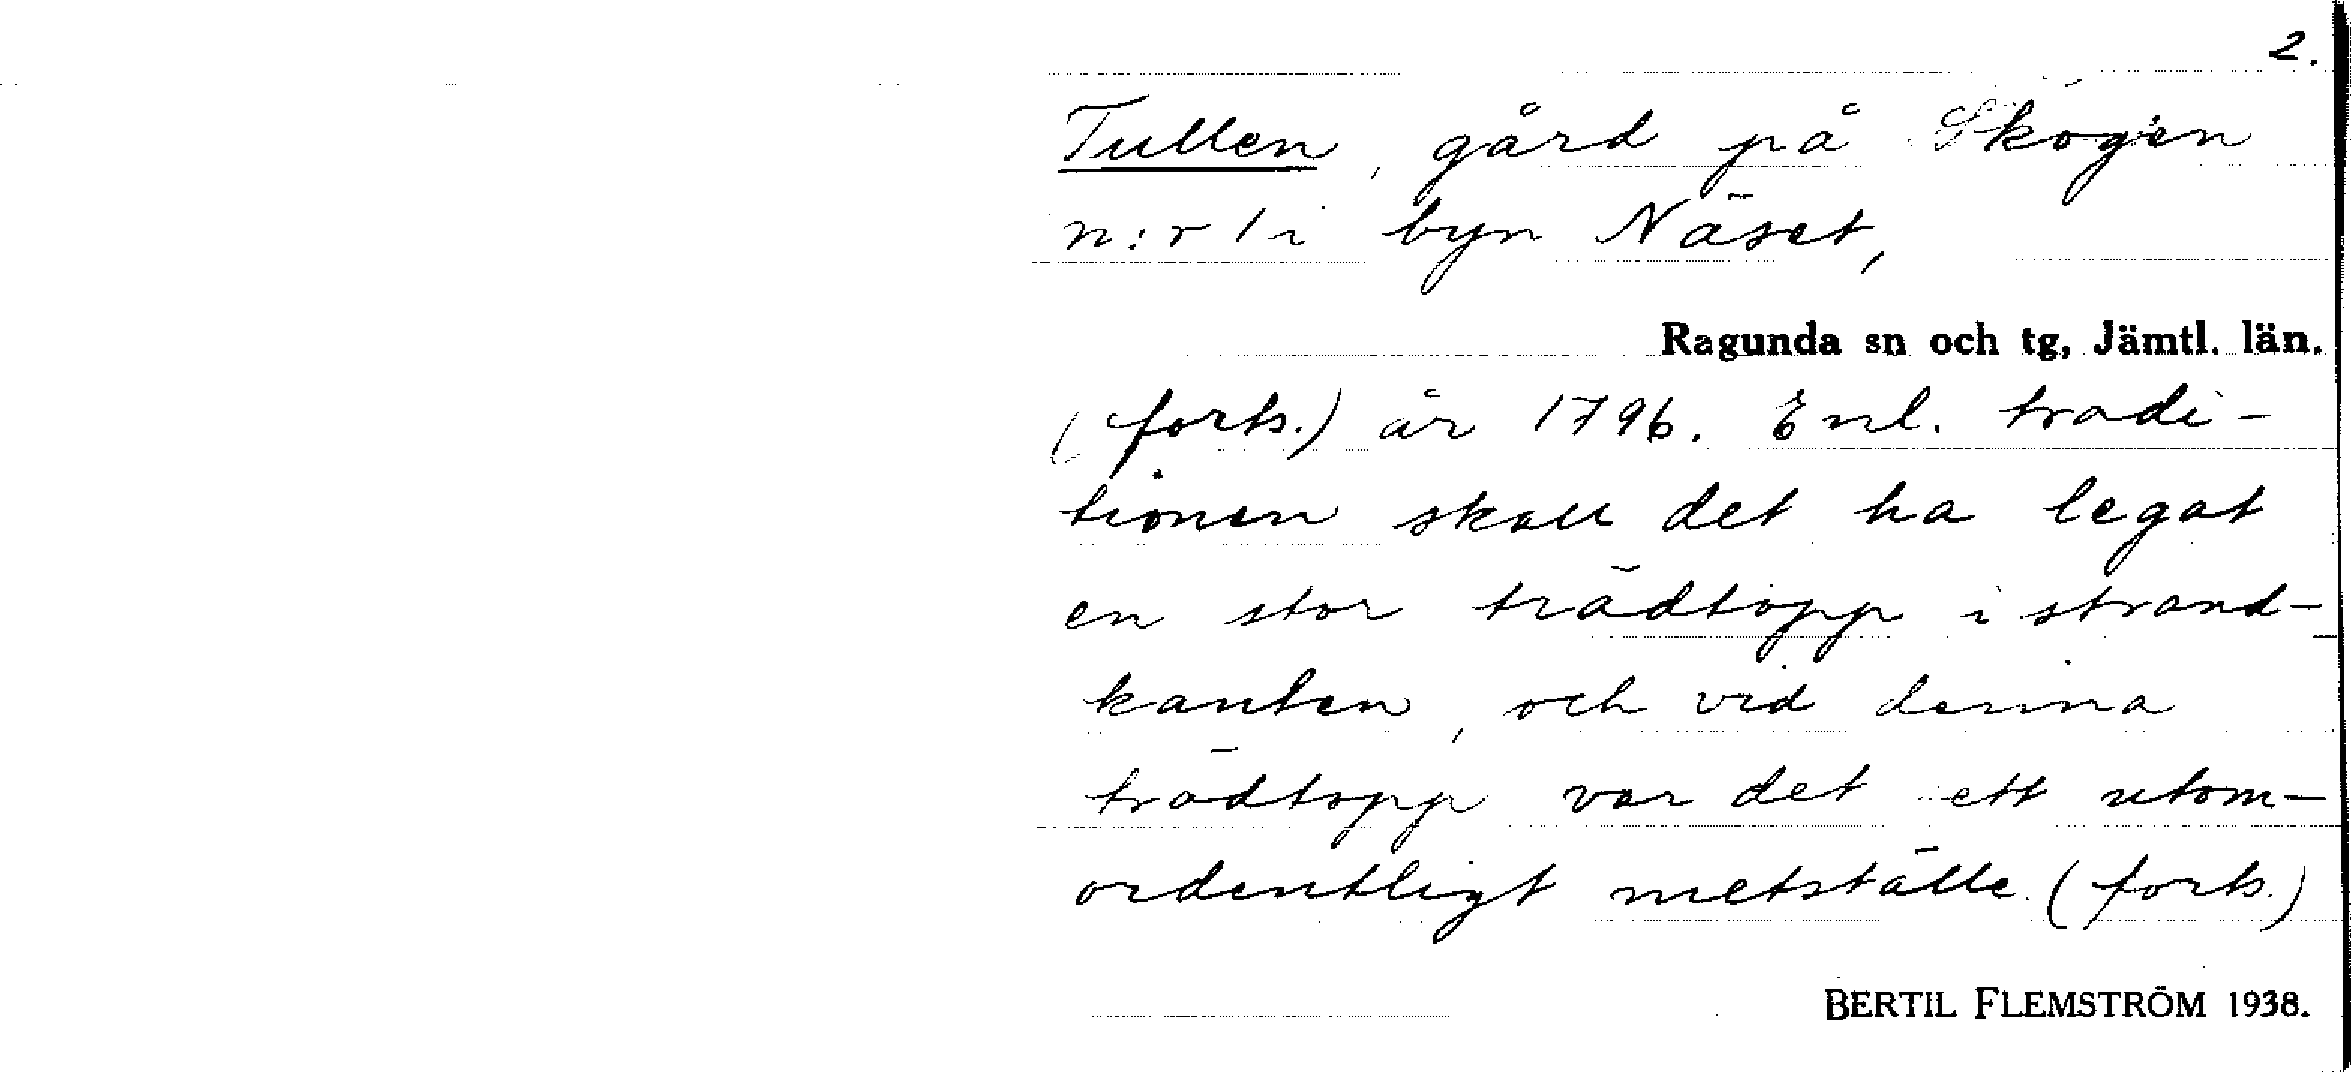 2.
Tullen, gård på Skogen
n:r 1 i byn Näset,
Ragunda sn och tg, Jämtl. län.
(forts.) år 1796. Enl. tradi-
tionen skall det ha legat
en stor trädtopp i strand-
kanten, och vid denna
trädtopp var det ett utom-
ordentligt metställe. (forts.)
BERTIL FLEMSTRÖM 1938.